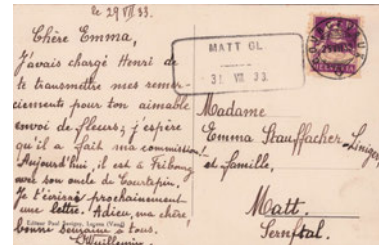 le 29 VII 33.
Chère Emma,
J'avais chargé Henri de
te transmettre mes remer-
ciements pour ton aimable
envoi de fleurs; j'espère
qu'il a fait ma commission!
Aujourd'hui, il est à Fribourg
avec son oncle de Courtepin.
Je t'écrirai prochainement
une lettre. Adieu, ma chère,
bonne semaine à tous.
L. Vuillemin
Editeur Paul Savigny, Lugnez (Vaud)
MATT GL.
31. VII. 33.
HELVETIA
Madame
Emma Stauffacher-Liniger
et famille.
Matt.
Sernftal.